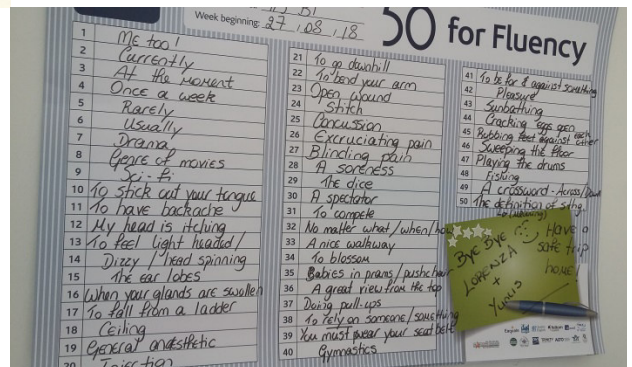 Week beginning: 27.08.18
50 for Fluency
1 Me too!
2 Currently
3 At the moment
4 Once a week
5 Rarely
6 Usually
7 Drama
8 Genre of movies
9 Sci-fi
10 To stick out your tongue
11 To have backache
12 My head is itching
13 To feel light headed/
14 Dizzy / head spinning
15 The ear lobes
16 When your glands are swollen
17 To fall from a ladder
18 Ceiling
19 General anaesthetic
20 Injection
21 To go downhill
22 To bend your arm
23 Open wound
24 Stitch
25 Concussion
26 Excruciating pain
27 Blinding pain
28 A soreness
29 The dice
30 A spectator
31 To compete
32 No matter what/when/how
33 A nice walkway
34 To blossom
35 Babies in prams/pushchair
36 A great view from the top
37 Doing pull-ups
38 To rely on someone/something
39 You must wear your seat belt
40 Gymnastics
41 To be for & against something
42 Pleasure
43 Sunbathing
44 Cracking eggs open
45 Rubbing feet against each other
46 Sweeping the floor
47 Playing the drums
48 Fishing
49 A crossword - Across/Down
50 The definition of sthg.
BYE BYE
LORENZA
+
YUNUS
Have a
safe trip
home!